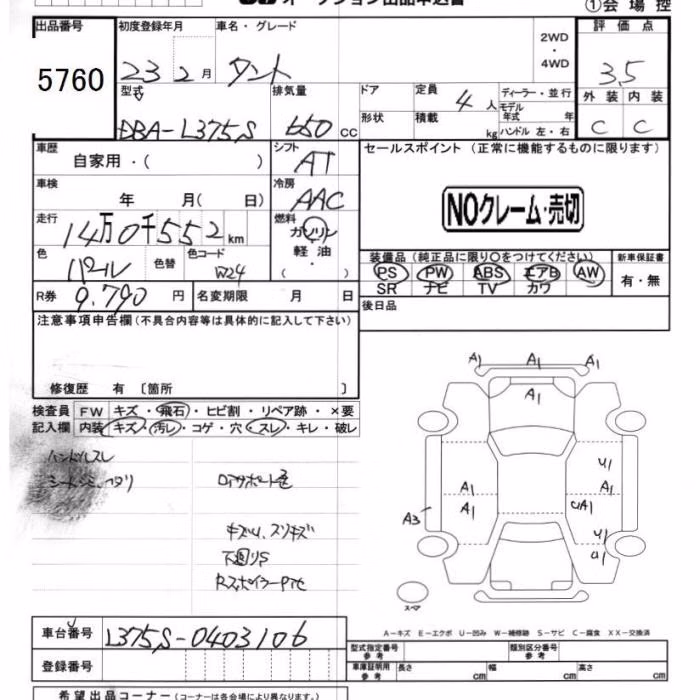 オークション出品申込書
①会場控
出品番号
5760
初度登録年月
23 2月
車名・グレード
タント
2WD
・
4WD
評価点
3.5
外装 内装
C C
型式
DBA-L375S
排気量
650 CC
ドア
形状
定員
4人
積載
kg
ディーラー・並行
モデル年式 年
ハンドル 左・右
車歴
自家用・( )
シフト
AT
セールスポイント(正常に機能するものに限ります)
NOクレーム・売切
車検
年 月( 日)
冷房
AAC
走行
14万0千552km
燃料
ガソリン
軽油・
( )
色
パール
色替
色コード
W24
装備品(純正品に限り○をつけてください)
PS PW ABS エアB AW
SR ナビ TV カワ
新車保証書
有・無
R券 9.790円
名変期限 月 日
後日品
注意事項申告欄(不具合内容等は具体的に記入して下さい)
修復歴 有〔箇所 〕
検査員記入欄
FW キズ・飛石・ヒビ割・リペア跡・×要
内装 キズ・汚レ・コゲ・穴・スレ・キレ・破レ
ハンドルスレ
キズU、スリキズ
下廻りS
A1 A1 A1
A1
U1
A1 A1
A1 UA1
A3
U1
U1
スペア
A-キズ E-エクボ U-凹み W-補修跡 S-サビ C-腐食 XX-交換済
車台番号
L375S-0403106
登録番号
型式指定番号 参考
類別区分番号 参考
車庫証明用 参考
長さ cm
幅 cm
高さ cm
希望出品コーナー(コーナーは各会場により異なります。)